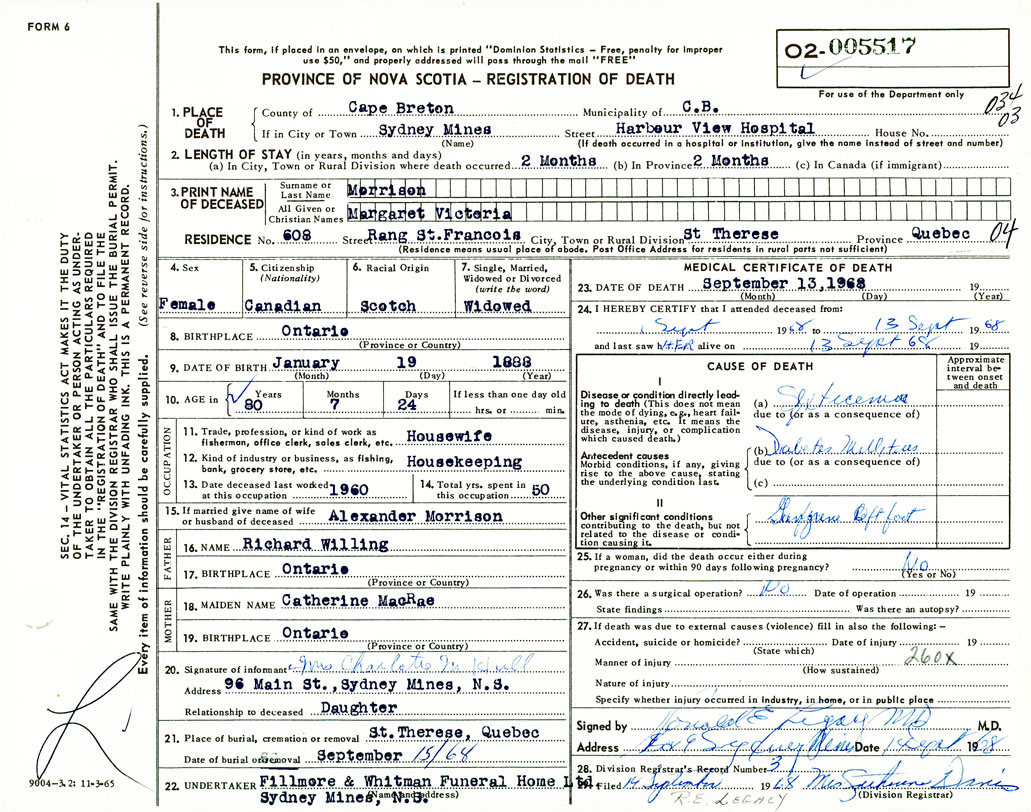 FORM 6
This form, if placed in an envelope, on which is printed "Dominion Statistics – Free, penalty for improper
use $50," and properly addressed will pass through the mail "FREE"
PROVINCE OF NOVA SCOTIA – REGISTRATION OF DEATH
02-005517
For use of the Department only
034
03
1. PLACE OF DEATH
County of Cape Breton Municipality of C.B.
If in City or Town Sydney Mines Street Harbour View Hospital House No.
(Name) (If death occurred in a hospital or institution, give the name instead of street and number)
2. LENGTH OF STAY (in years, months and days)
(a) In City, Town or Rural Division where death occurred 2 Months (b) In Province 2 Months (c) In Canada (if immigrant)
3. PRINT NAME OF DECEASED
Surname or Last Name Morrison
All Given or Christian Names Margaret Victoria
RESIDENCE No. 608 Street Rang St.Francois City, Town or Rural Division St Therese Province Quebec 04
(Residence means usual place of abode. Post Office Address for residents in rural parts not sufficient)
4. Sex
Female
5. Citizenship
(Nationality)
Canadian
6. Racial Origin
Scotch
7. Single, Married,
Widowed or Divorced
(write the word)
Widowed
8. BIRTHPLACE Ontario
(Province or Country)
9. DATE OF BIRTH January 19 1888
(Month) (Day) (Year)
10. AGE in Years Months Days If less than one day old
80 7 24 hrs. or min.
OCCUPATION
11. Trade, profession, or kind of work as
fisherman, office clerk, sales clerk, etc. Housewife
12. Kind of industry or business, as fishing,
bank, grocery store, etc. Housekeeping
13. Date deceased last worked
at this occupation 1960
14. Total yrs. spent in
this occupation 50
15. If married give name of wife
or husband of deceased Alexander Morrison
FATHER
16. NAME Richard Willing
17. BIRTHPLACE Ontario
(Province or Country)
MOTHER
18. MAIDEN NAME Catherine MacRae
19. BIRTHPLACE Ontario
(Province or Country)
20. Signature of informant Mrs Charlotte
Address 96 Main St.,Sydney Mines, N.S.
Relationship to deceased Daughter
21. Place of burial, cremation or removal St.Therese, Quebec
Date of burial or removal September 15/68
22. UNDERTAKER Fillmore & Whitman Funeral Home Ltd
(Name and address)
Sydney Mines, N.S.
MEDICAL CERTIFICATE OF DEATH
23. DATE OF DEATH September 13,1968 19
(Month) (Day) (Year)
24. I HEREBY CERTIFY that I attended deceased from:
1 Sept 1968 to 13 Sept 1968
and last saw hER alive on 13 Sept 68 19
CAUSE OF DEATH
Approximate
interval be-
tween onset
and death
I
Disease or condition directly lead-
ing to death (This does not mean
the mode of dying, e.g., heart fail-
ure, asthenia, etc. It means the
disease, injury, or complication
which caused death.)
(a) Septicemia
due to (or as a consequence of)
Antecedent causes
Morbid conditions, if any, giving
rise to the above cause, stating
the underlying condition last.
(b) Diabetes Mellitus
due to (or as a consequence of)
(c)
II
Other significant conditions
contributing to the death, but not
related to the disease or condi-
tion causing it.
Gangrene left foot
25. If a woman, did the death occur either during
pregnancy or within 90 days following pregnancy? No
(Yes or No)
26. Was there a surgical operation? No Date of operation 19
State findings Was there an autopsy?
27. If death was due to external causes (violence) fill in also the following: –
Accident, suicide or homicide? Date of injury 19
(State which)
Manner of injury 260X
(How sustained)
Nature of injury
Specify whether injury occurred in industry, in home, or in public place
Signed by Donald E Legacy MD M.D.
Address Box 9 Sydney Mines Date 14 Sept 1968
28. Division Registrar's Record Number 3
29. Filed 14 September 1968 Mrs Davis
(Division Registrar)
R.E. LEGACY
SEC. 14 – VITAL STATISTICS ACT MAKES IT THE DUTY
OF THE UNDERTAKER OR PERSON ACTING AS UNDER-
TAKER TO OBTAIN ALL THE PARTICULARS REQUIRED
IN THE "REGISTRATION OF DEATH" AND TO FILE THE
SAME WITH THE DIVISION REGISTRAR WHO SHALL ISSUE THE BURIAL PERMIT.
WRITE PLAINLY WITH UNFADING INK. THIS IS A PERMANENT RECORD.
Every item of information should be carefully supplied. (See reverse side for instructions.)
9004–3.2: 11-3-65